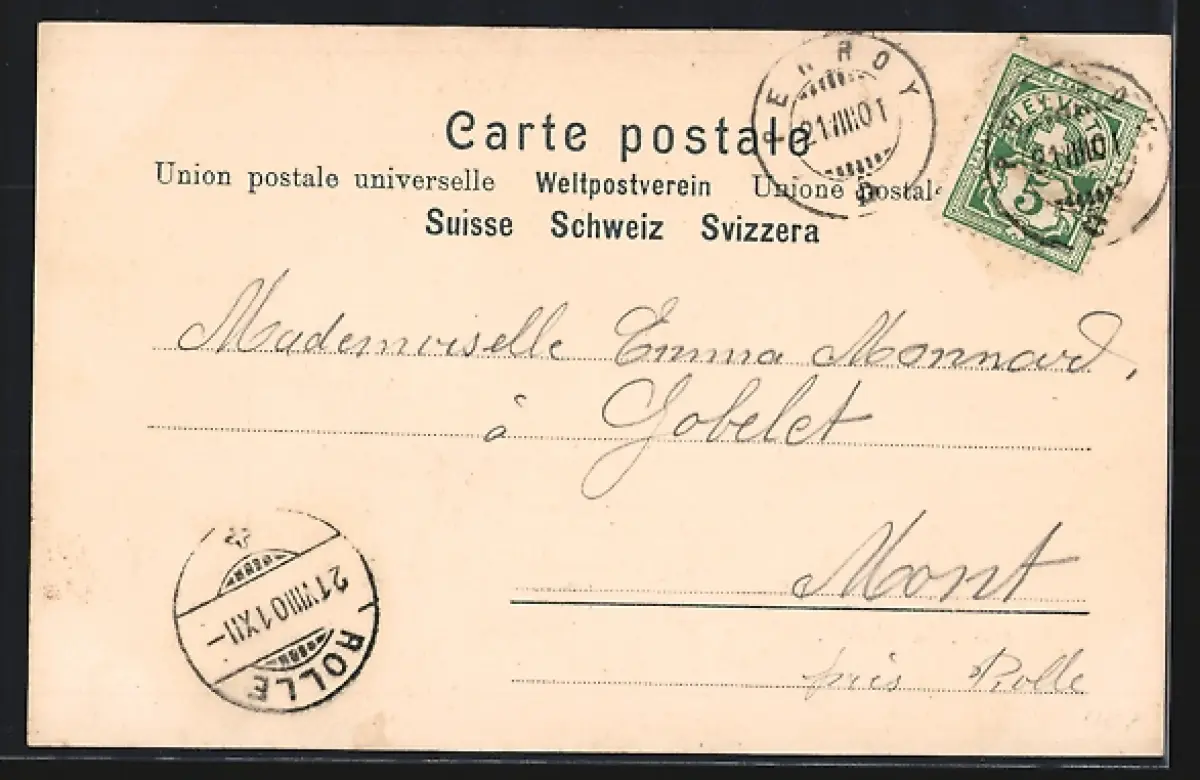 Carte postale
Union postale universelle Weltpostverein Unione postale
Suisse Schweiz Svizzera
21 VIII 01
5
Mademoiselle Emma Monnard,
à Gobelet
Mont
près Rolle
21 VIII 01 XII –
ROLLE